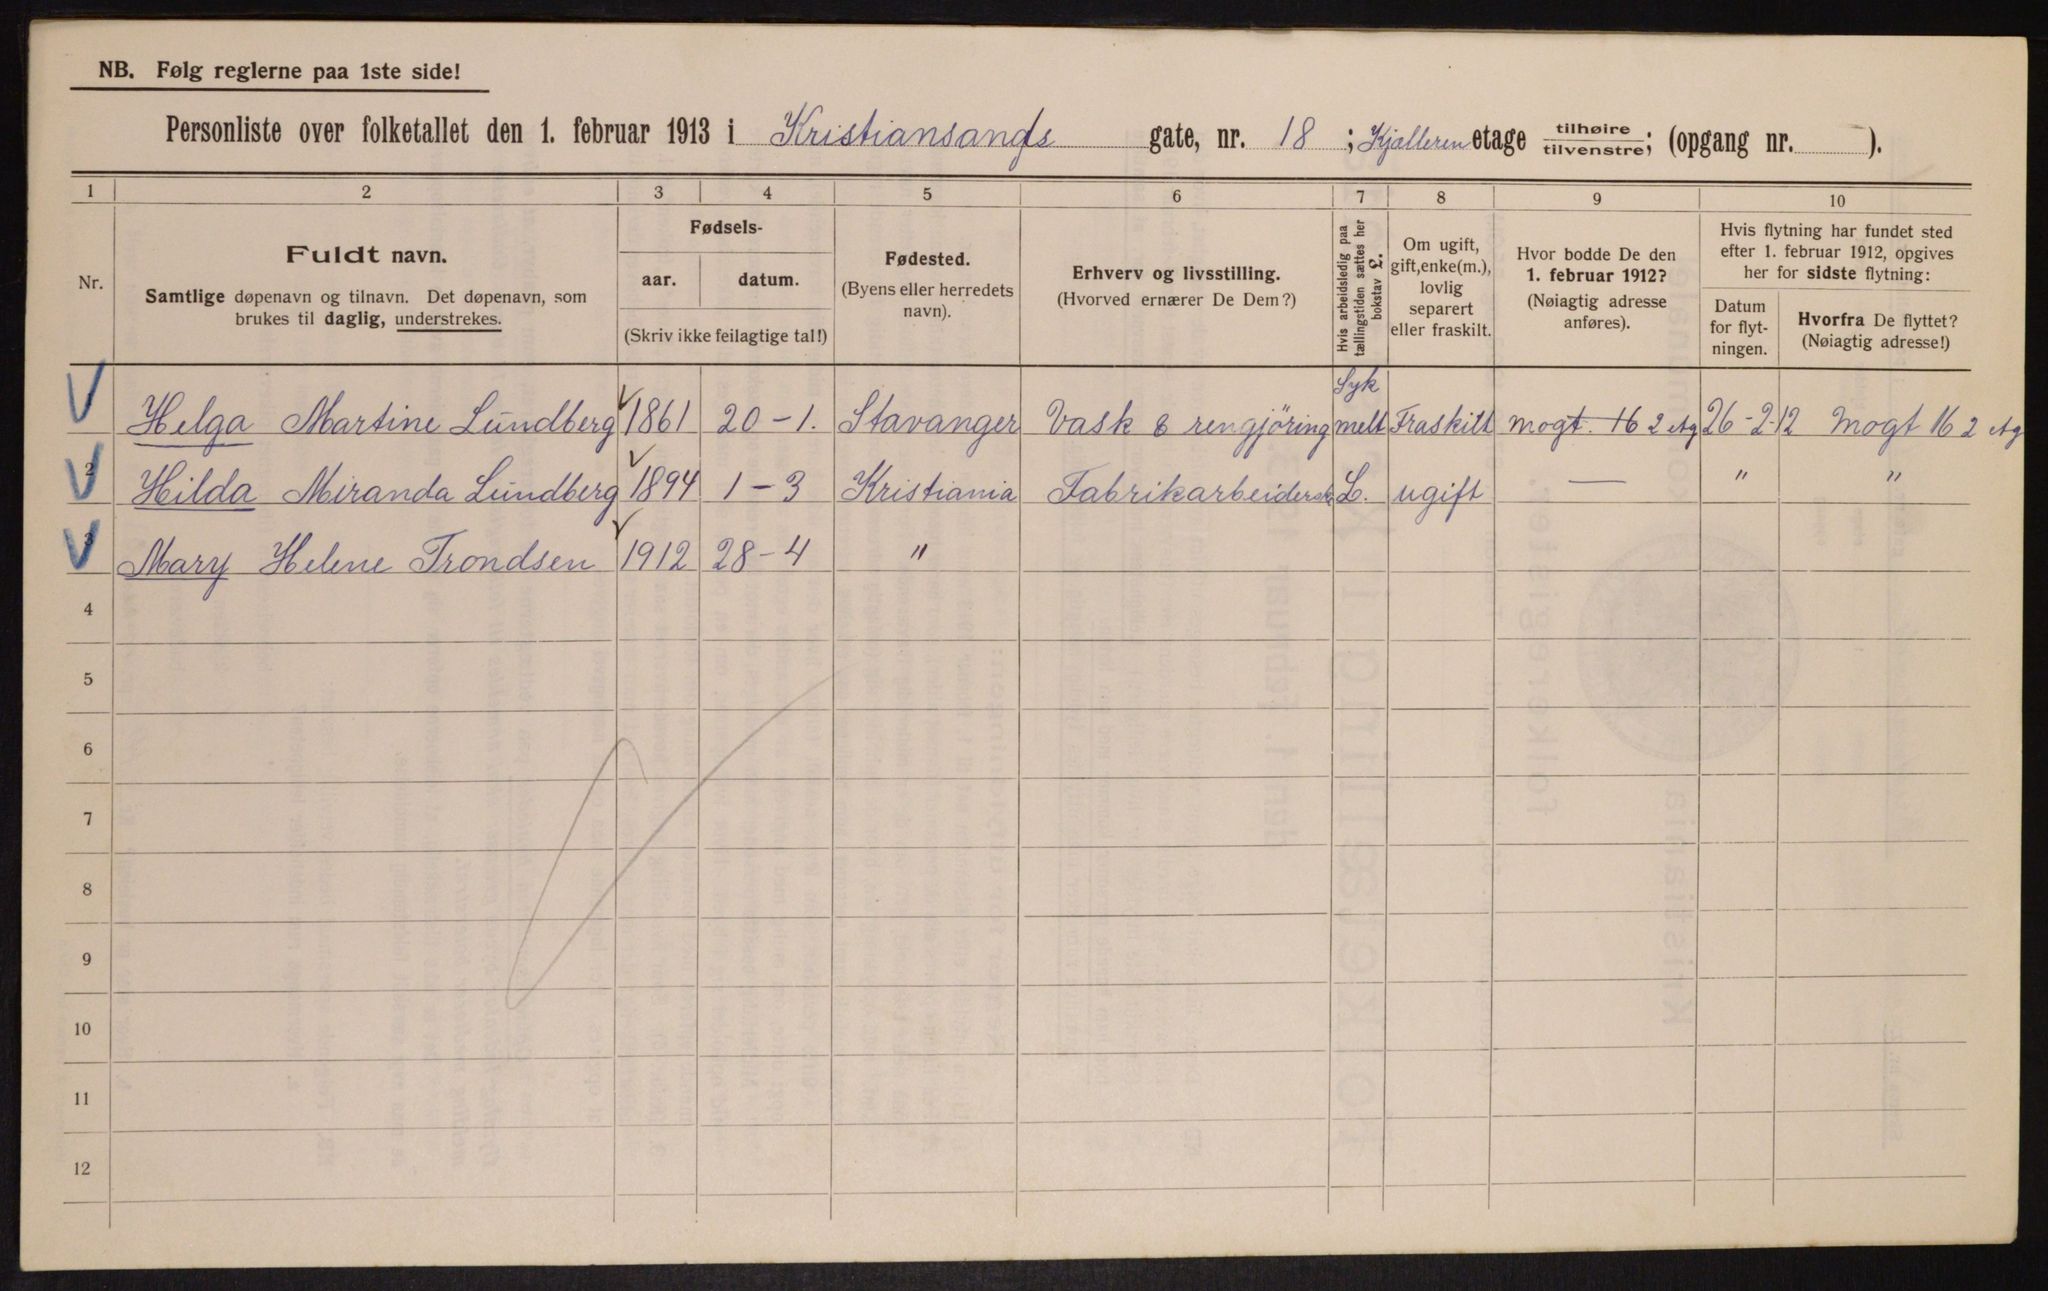 NB. Følg reglerne paa 1ste side!
Personliste over folketallet den 1. februar 1913 i Kristiansands gate, nr. 18 ; Kjælleren etage tilhøire tilvenstre; (opgang nr. ).
1 2 3 4 5 6 7 8 9 10
Nr.
Fuldt navn.
Samtlige døpenavn og tilnavn. Det døpenavn, som
brukes til daglig, understrekes.
Fødsels-
aar. datum.
(Skriv ikke feilagtige tal!)
Fødested.
(Byens eller herredets
navn).
Erhverv og livsstilling.
(Hvorved ernærer De Dem?)
Hvis arbeidsledig paa
tællingstiden sættes her
bokstav L.
Om ugift,
gift,enke(m.),
lovlig
separert
eller fraskilt.
Hvor bodde De den
1. februar 1912?
(Nøiagtig adresse
anføres).
Hvis flytning har fundet sted
efter 1. februar 1912, opgives
her for sidste flytning:
Datum
for flyt-
ningen.
Hvorfra De flyttet?
(Nøiagtig adresse!)
Helga Martine Lundberg 1861 20-1. Stavanger Vask & rengjöring Syk melt Fraskilt mogt. 16 2 etg 26-2-12 Mogt 16 2 etg
2 Hilda Miranda Lundberg 1894 1-3 Kristiania Fabrikarbeiderske L. ugift — " "
3 Mary Helene Trondsen 1912 28-4 "
4
5
6
7
8
9
10
11
12